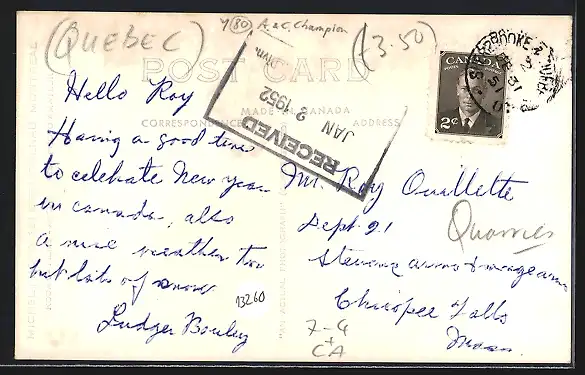 (QUEBEC)
Y(80) A. & C. Champion
(3.50)
POST CARD
MADE IN CANADA
CORRESPONDENCE
ADDRESS
RECEIVED
JAN 2 1952
Divn.
CANADA
2¢
Hello Roy
Having a good time
to celebrate New year
in canada, also
a nice weather too
but lots of snow
Ludger
13260
Mr. Roy Ouellette
Dept 21
Stevens arms
Chicopee Falls
Mass.
Quarries
7-4
+
CA